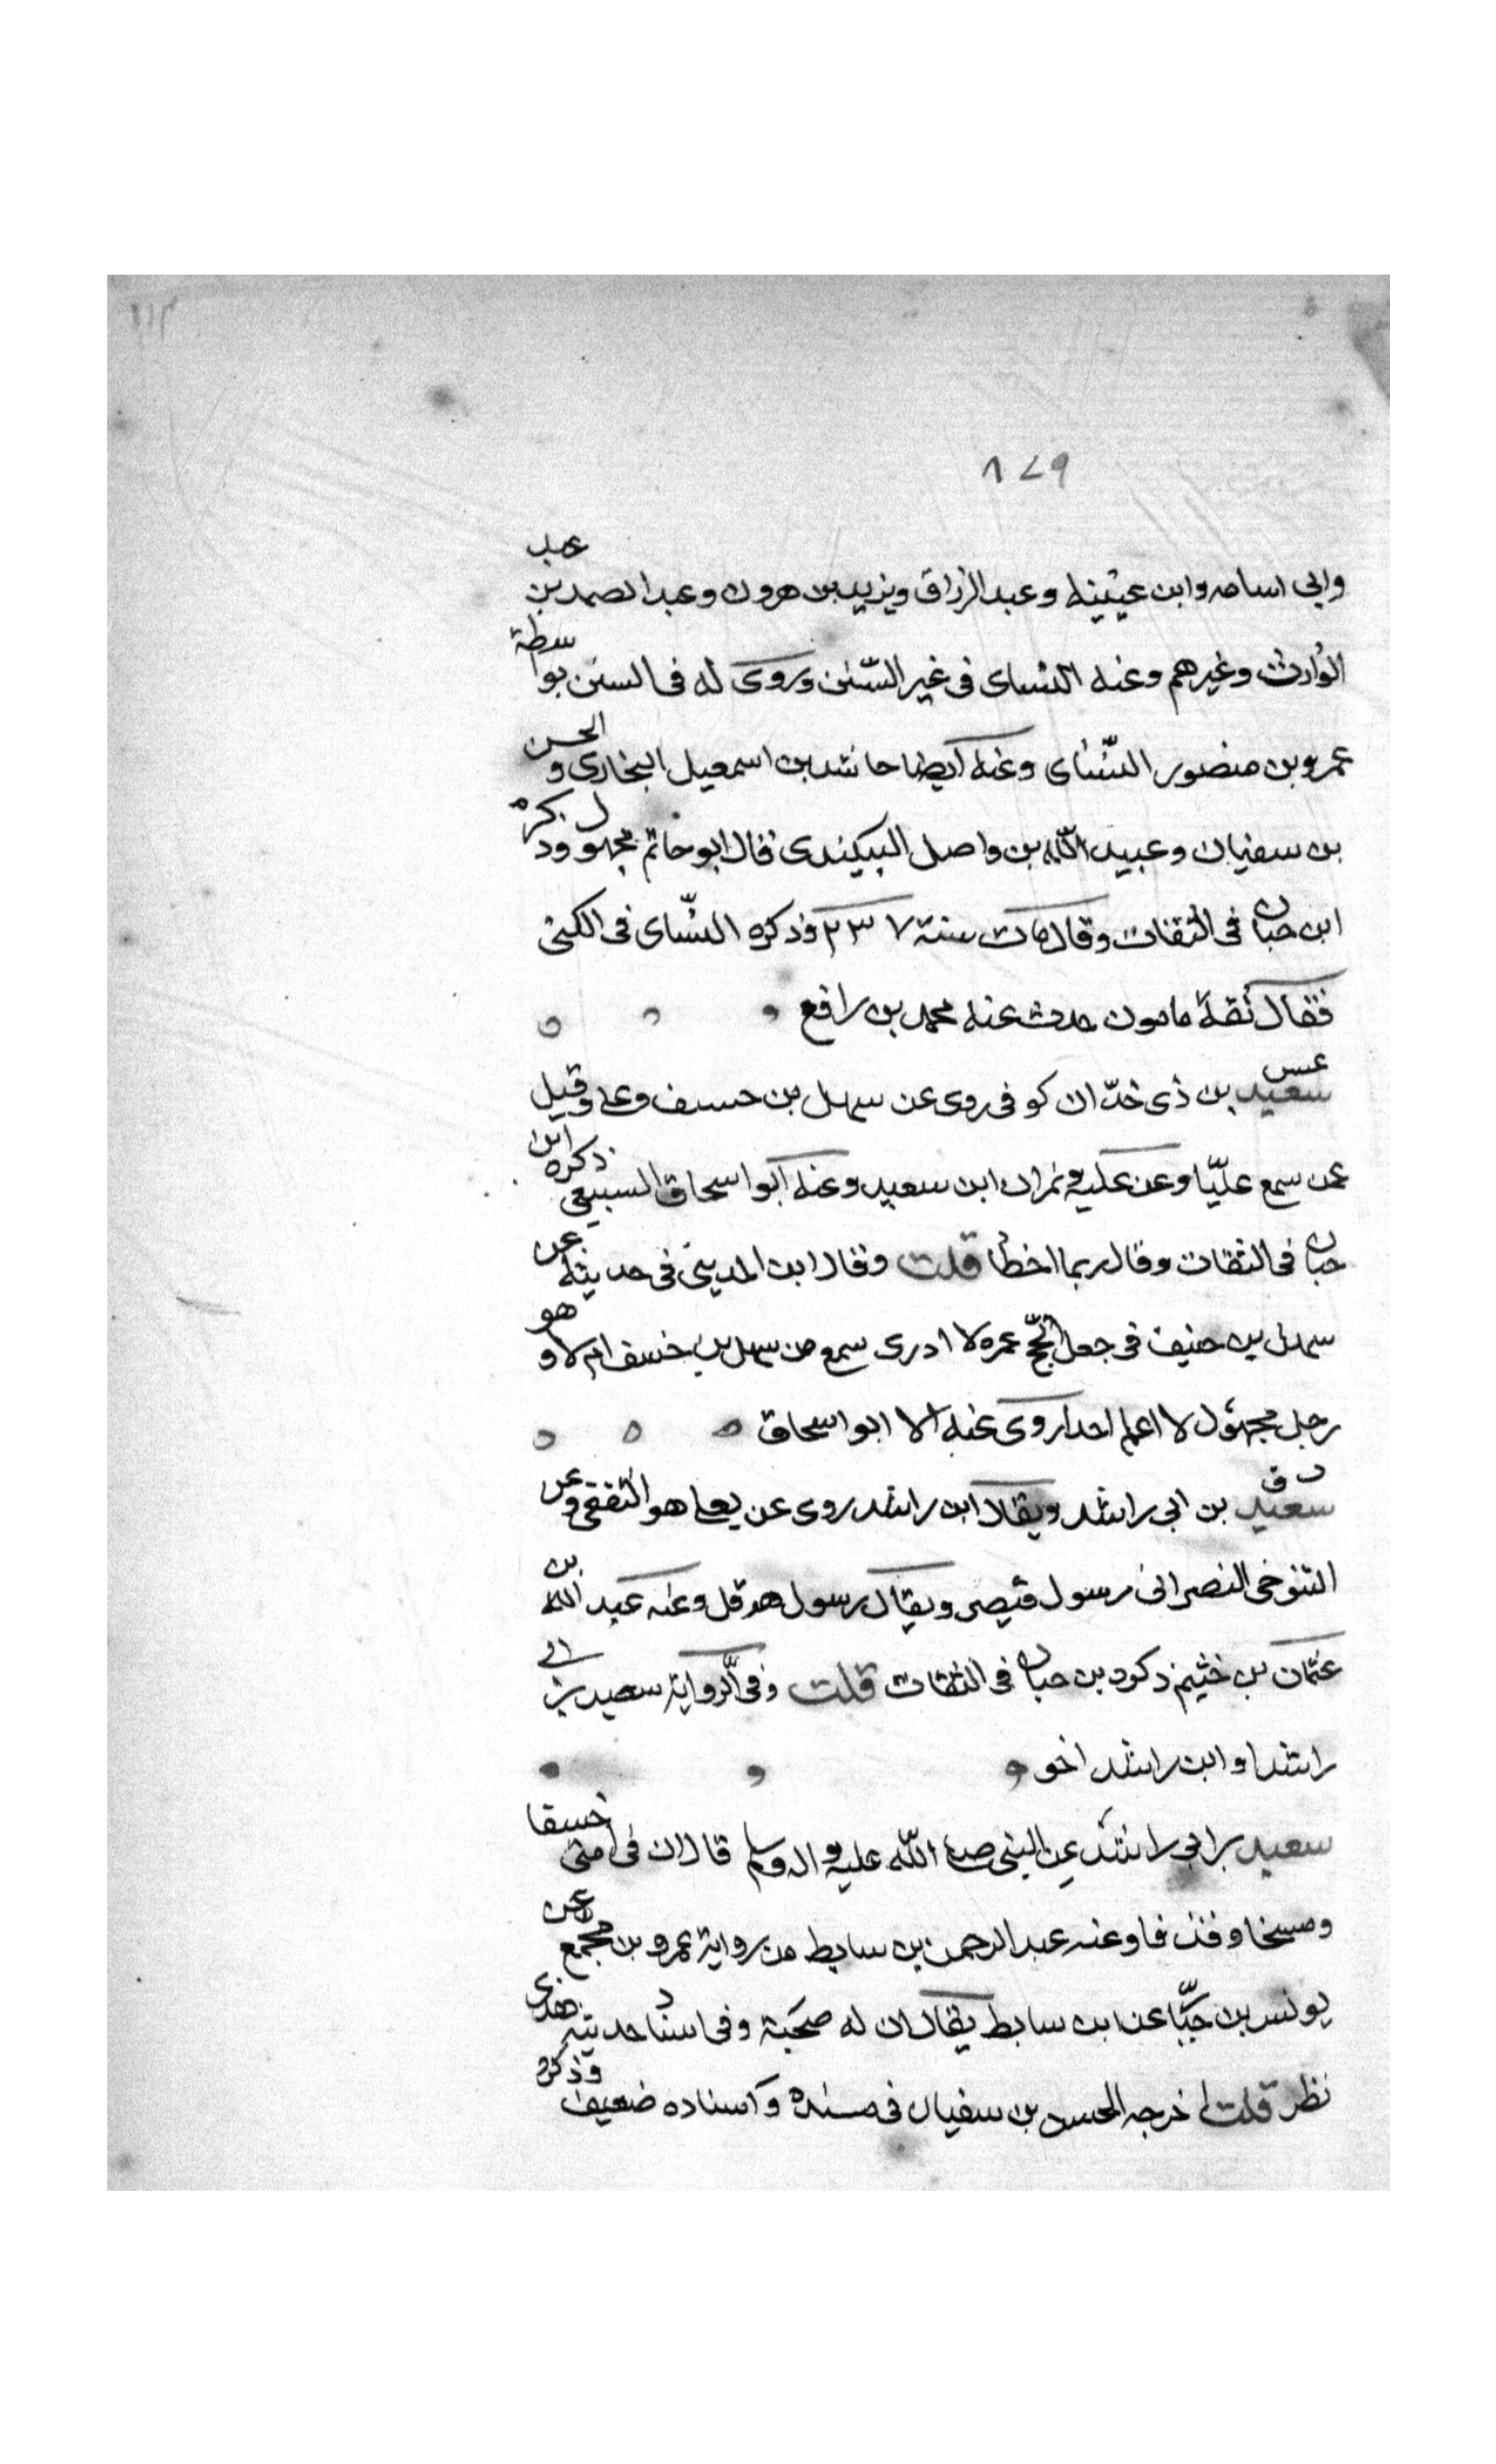 ٨٤٩
وابى اسامه وابن عيينه وعبد الرزاق ويزيد بن هرون وعبد الصمد بن عبد
الوارث وغيرهم وعنه النساى فى غير السنن وروى له فى السنن بواسطة
عمرو بن منصور النساى وعنه ايضا حاشد بن اسمعيل البخارى والحسن
بن سفيان وعبيد الله بن واصل البيكندى قال ابو حاتم مجهول وذكره
ابن حبان فى الثقات وقال مات سنة ٢٣٧ وذكره النساى فى الكنى
فقال ثقة مامون حدث عنه محمد بن رافع
عس سعيد بن ذى حدان كوفى روى عن سهل بن حسف وعلى وقيل
عمن سمع عليا وعن عليه ونمران ابن سعيد وعنه ابو اسحاق السبيعى ذكره ابن
حبان فى الثقات وقال ربما اخطأ قلت وقال ابن المدينى فى حديثه عن
سهل بن حنيف فى جعل الحج عمره لا ادرى سمع من سهل بن حنيف ام لا وهو
رجل مجهول لا اعلم احدا روى عنه الا ابو اسحاق
د ق سعيد بن ابى راشد ويقال ابن راشد روى عن يعلى هو الثقفى وعن
التنوخى النصرانى رسول قيصر ويقال رسول هرقل وعنه عبد الله بن
عثمان بن خثيم ذكره بن حبان فى الثقات قلت وفى الرواية سعيد بن ابى
راشد او ابن راشد اخو
سعيد بن ابى راشد عن النبى صلى الله عليه واله وسلم قال ان فى امتى خسفا
ومسخا وقذفا وعنه عبد الرحمن بن سابط من رواية عمرو بن مجمع عن
يونس بن حبا عن ابن سابط يقال ان له صحبة وفى اسناد حديثه هذى
نظر قلت اخرجه الحسن بن سفيان فى مسنده واسناده ضعيف وذكره